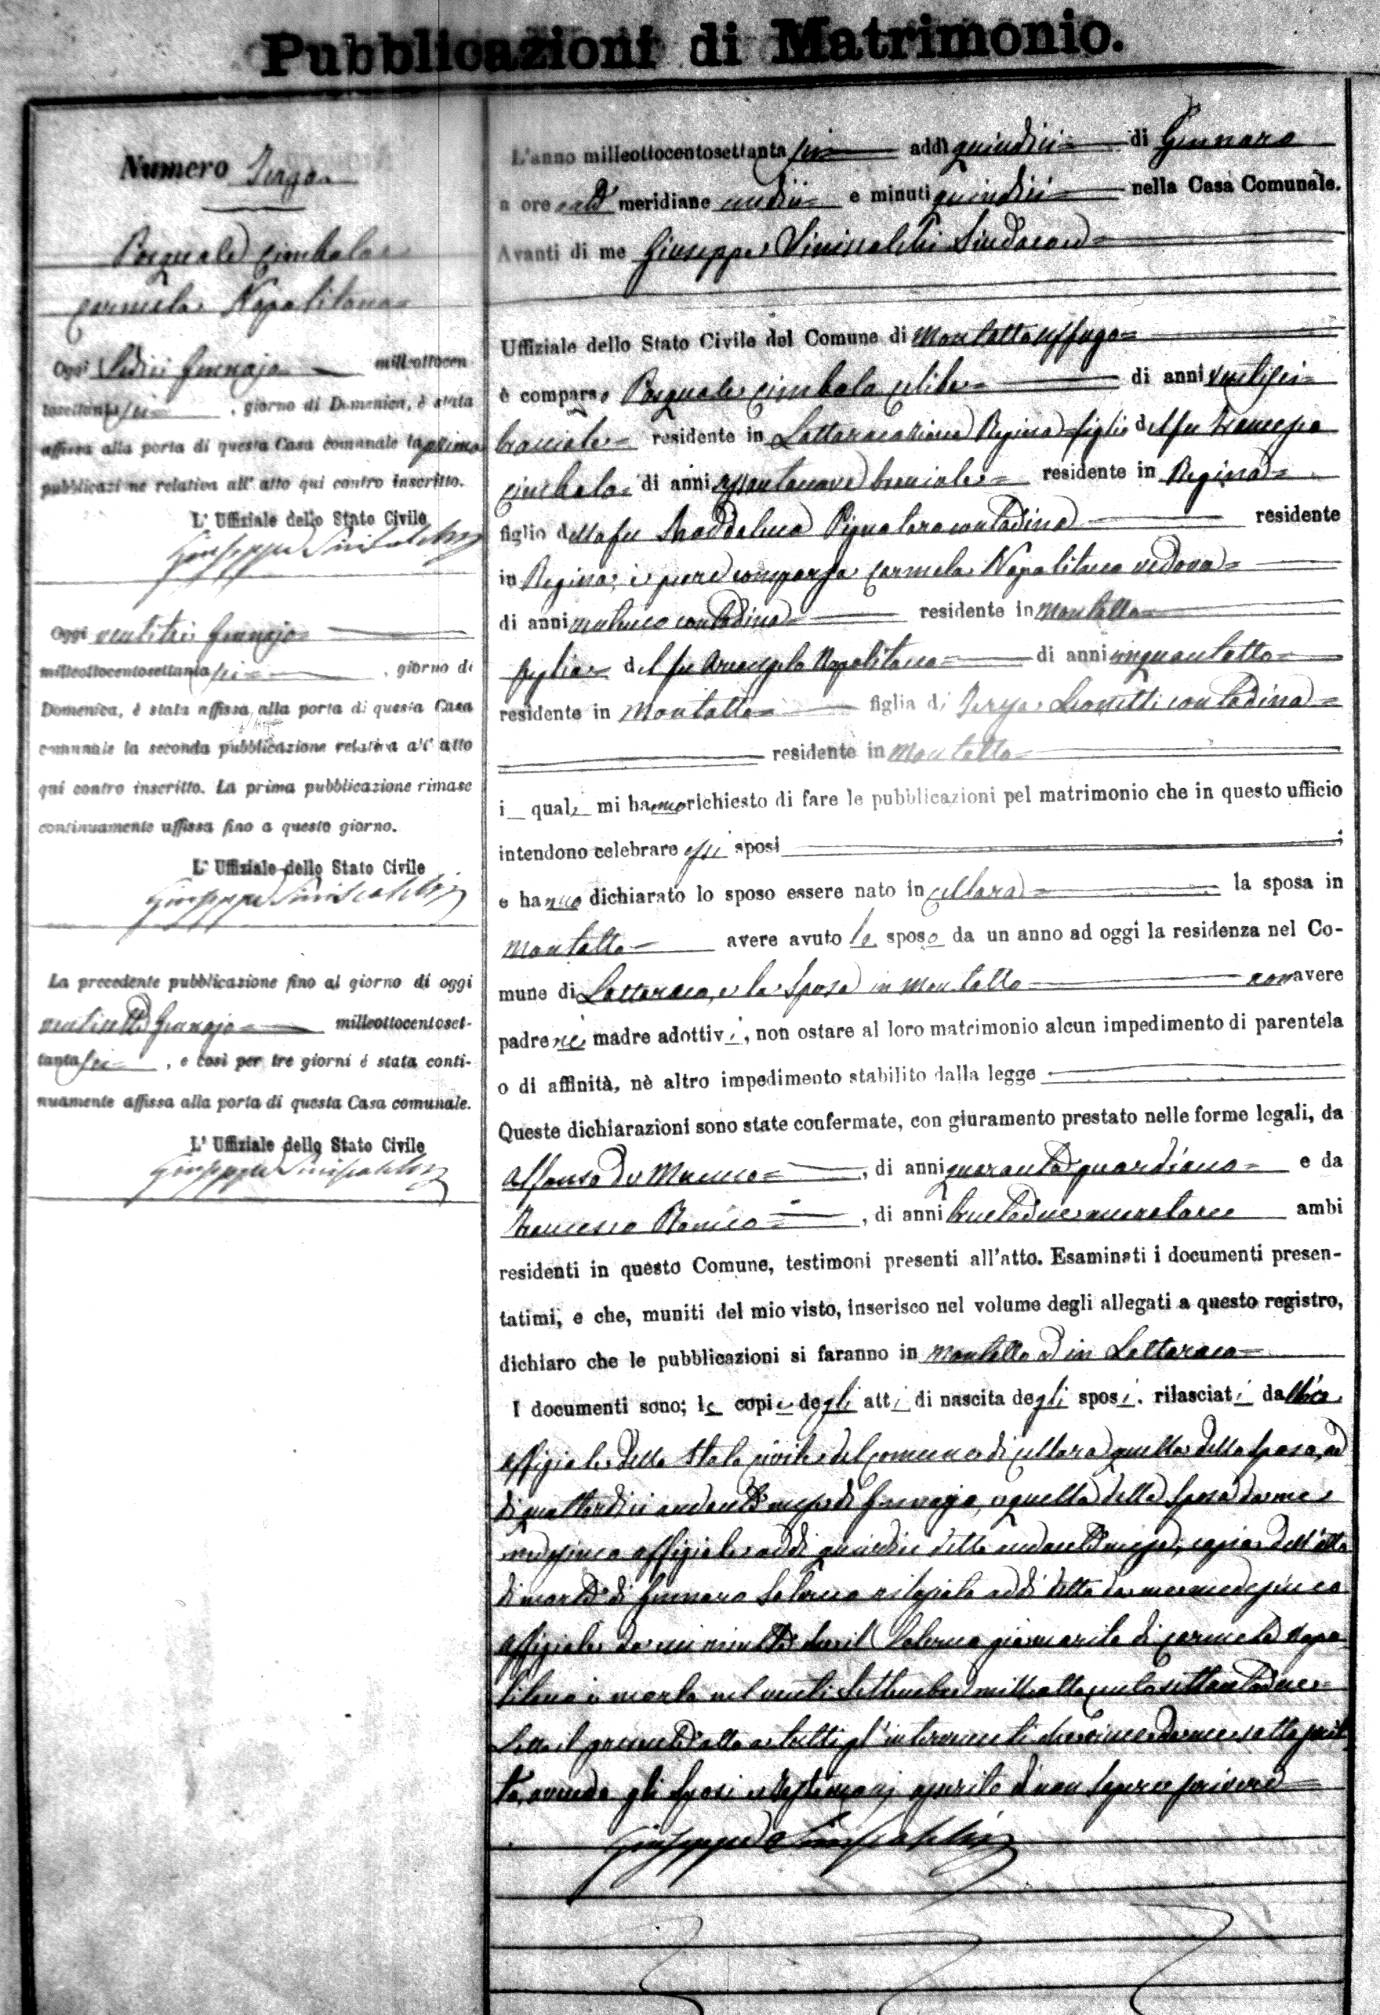 Pubblicazioni di Matrimonio.
Numero Terzo
Pasquale Cimbalo e
Carmela Napolitano
Oggi Sedici Gennajo milleottocen
tosettanta sei, giorno di Domenica, è stata
affissa alla porta di questa Casa comunale la prima
pubblicazione relativa all' atto qui contro inscritto.
L' Uffiziale dello Stato Civile
Giuseppe Siniscalchi
Oggi ventitre Gennajo
milleottocentosettanta sei, giorno di
Domenica, è stata affissa alla porta di questa Casa
comunale la seconda pubblicazione relativa all' atto
qui contro inscritto. La prima pubblicazione rimase
continuamente affissa fino a questo giorno.
L' Uffiziale dello Stato Civile
Giuseppe Siniscalchi
La precedente pubblicazione fino al giorno di oggi
ventisette Gennajo milleottocentoset-
tanta sei, e così per tre giorni è stata conti-
nuamente affissa alla porta di questa Casa comunale.
L' Uffiziale dello Stato Civile
Giuseppe Siniscalchi
L'anno milleottocentosettanta sei addì quindici di Gennaro
a ore meridiane undici e minuti quindici nella Casa Comunale.
Avanti di me Giuseppe Siniscalchi Sindaco
Uffiziale dello Stato Civile del Comune di Montalto Uffugo
è comparso Pasquale Cimbalo celibe di anni ventisei
bracciale residente in Lattaraco Regina figlio del fu Francesco
Cimbalo di anni bracciale residente in Regina
figlio della fu Maddalena Pignataro contadina residente
in Regina, è pure comparsa Carmela Napolitano vedova
di anni contadina residente in Montalto
figlia del fu Arcangelo Napolitano di anni cinquantotto
residente in Montalto figlia di Teresa Leonetti contadina
residente in Montalto
i quali mi hanno richiesto di fare le pubblicazioni pel matrimonio che in questo ufficio
intendono celebrare essi sposi ;
e hanno dichiarato lo sposo essere nato in Cellara la sposa in
Montalto avere avuto lo sposo da un anno ad oggi la residenza nel Co-
mune di Lattaraco, e la sposa in Montalto non avere
padre nè madre adottivi, non ostare al loro matrimonio alcun impedimento di parentela
o di affinità, nè altro impedimento stabilito dalla legge
Queste dichiarazioni sono state confermate, con giuramento prestato nelle forme legali, da
Alfonso de Munno, di anni quaranta guardiano e da
Francesco, di anni trentadue ambi
residenti in questo Comune, testimoni presenti all'atto. Esaminati i documenti presen-
tatimi, e che, muniti del mio visto, inserisco nel volume degli allegati a questo registro,
dichiaro che le pubblicazioni si faranno in Montalto ed in Lattaraco
I documenti sono; le copie degli atti di nascita degli sposi. rilasciati
Uffiziale dello Stato Civile del Comune di Cellara quella dello sposo, ad
di quattordici andante mese di Gennajo, e quella della sposa da me
medesimo Uffiziale addi quindici detto andante mese, copia dell'atto
di morte di Gennaro Salerno rilasciata addi detto da me medesimo
Uffiziale da cui risulta che il Salerno già marito di Carmela Napo
litano è morto nel venti Settembre milleottocentosettantadue
Letto il presente atto a tutti gl'intervenuti viene da me sottoscrit
to, avendo gli sposi e testimonj asserito di non sapere scrivere
Giuseppe Siniscalchi